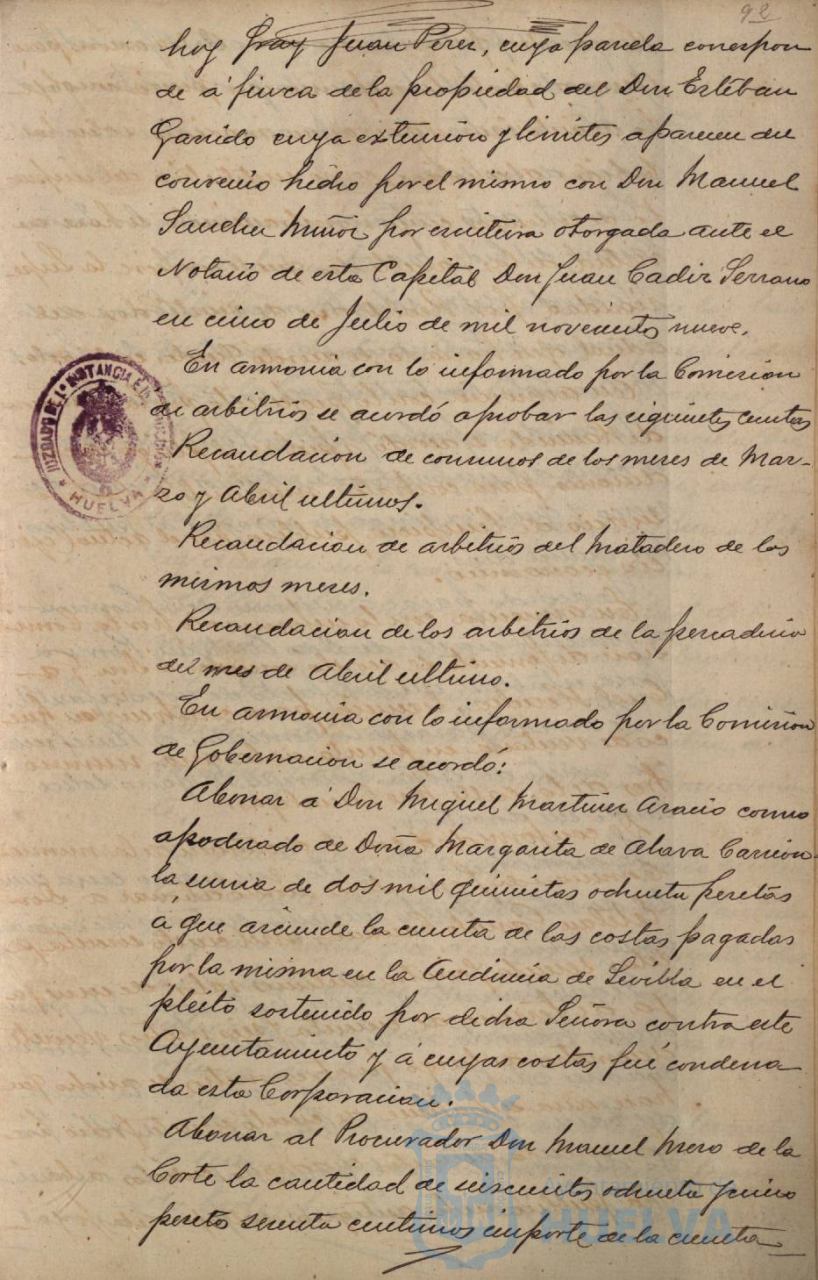 92
hoy Fray Juan Perez, cuya parcela correspon
de á finca de la propiedad del Don Estéban
Garrido cuya extension y limites aparecen del
convenio hecho por el mismo con Don Manuel
Sanchez Muñoz por escritura otorgada ante el
Notario de esta Capital Don Juan Cadiz Serrano
en cinco de Julio de mil novecientos nueve.
En armonia con lo informado por la Comision
de arbitrios se acordó aprobar las siguientes cuentas
Recaudacion de consumos de los meses de Mar-
zo y Abril ultimos.
Recaudacion de arbitrios del Matadero de los
mismos meses.
Recaudacion de los arbitrios de la pescaderia
del mes de Abril ultimo.
En armonia con lo informado por la Comision
de Gobernacion se acordó:
Abonar á Don Miguel Martinez como
apoderado de Doña Margarita de Alava Carrion
la suma de dos mil quinientas ochenta pesetas
á que asciende la cuenta de las costas pagadas
por la misma en la Audiencia de Sevilla en el
pleito sostenido por dicha Señora contra este
Ayuntamiento y á cuyas costas fué condena
da esta Corporacion.
Abonar al Procurador Don Manuel Mero de la
Corte la cantidad de seiscientos ochenta y cinco
pesetas sesenta centimos importe de la cuenta
JUZGADO DE 1ª INSTANCIA E INSTRUCCION
HUELVA
HUELVA